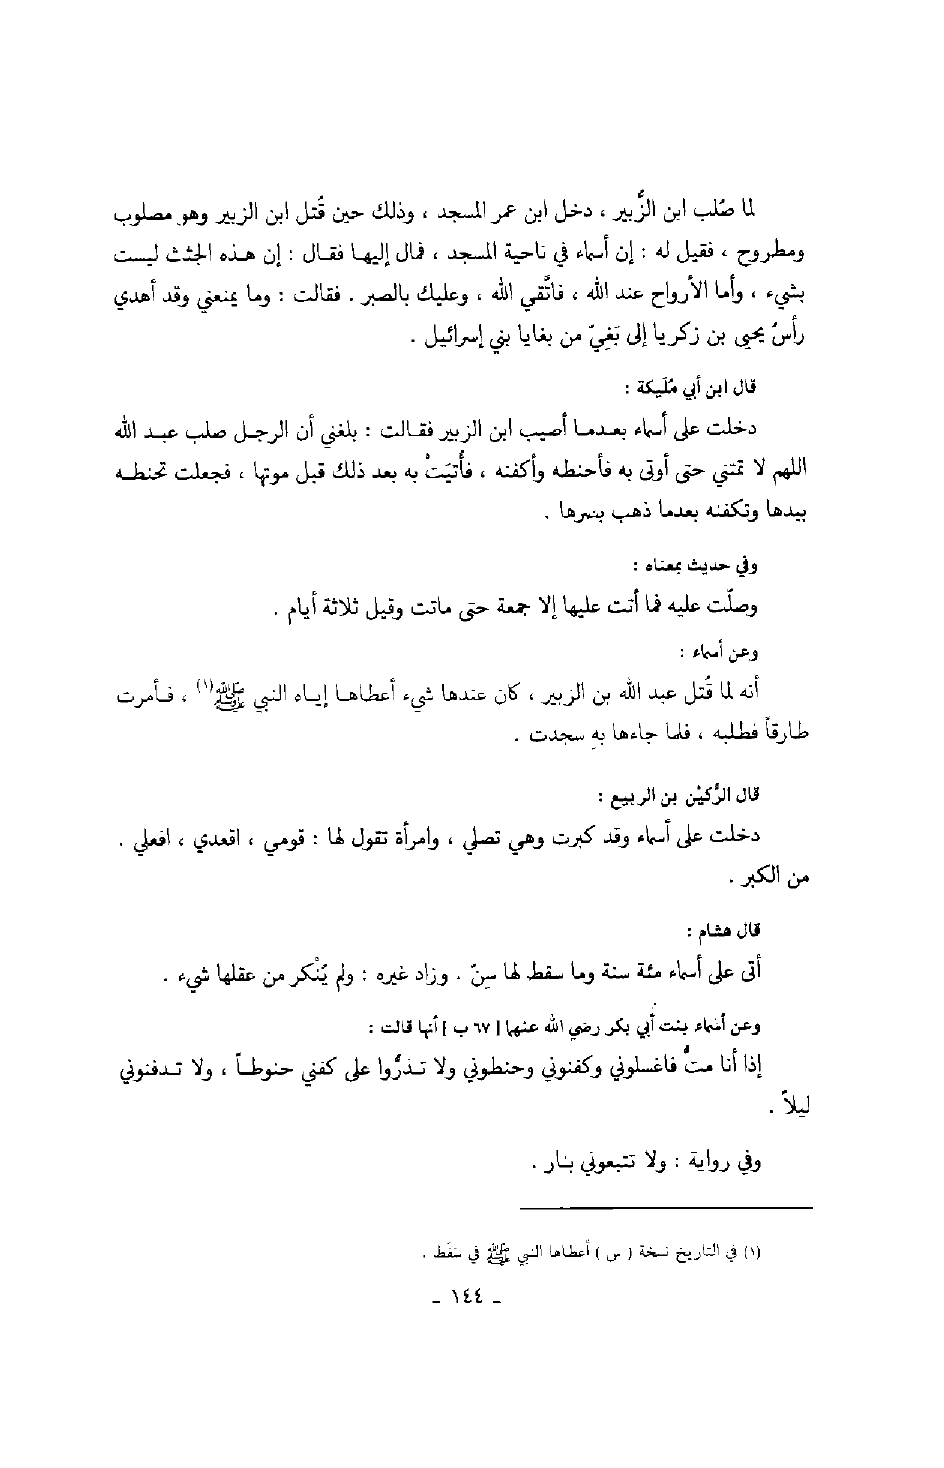 لما صُلب ابن الزُّبير ، دخل ابن عمر المسجد ، وذلك حين قُتل ابن الزبير وهو مصلوب
ومطروح ، فقيل له : إن أسماء في ناحية المسجد ، فمال إليها فقال : إن هذه الجثث ليست
بشيء ، وأما الأرواح عند الله ، فاتَّقي الله ، وعليك بالصبر . فقالت : وما يمنعني وقد أهدي
رأسُ يحيى بن زكريا إلى بَغِيّ من بغايا بني إسرائيل .
قال ابن أبي مُلَيكة :
دخلت على أسماء بعدما أصيب ابن الزبير فقالت : بلغني أن الرجل صلب عبد الله
اللهم لا تمتني حتى أوتى به فأحنطه وأكفنه ، فأُتيَتْ به بعد ذلك قبل موتها ، فجعلت تحنطه
بيدها وتكفنه بعدما ذهب بصرها .
وفي حديث بمعناه :
وصلّت عليه فما أتت عليها إلا جمعة حتى ماتت وقيل ثلاثة أيام .
وعن أسماء :
أنه لما قُتل عبد الله بن الزبير ، كان عندها شيء أعطاها إياه النبي ﷺ(١) ، فأمرت
طارقاً فطلبه ، فلما جاءها بهِ سجدت .
قال الرُّكيْن بن الربيع :
دخلت على أسماء وقد كبرت وهي تصلي ، وامرأة تقول لها : قومي ، اقعدي ، افعلي .
من الكبر .
قال هشام :
أتى على أسماء مئة سنة وما سقط لها سِنّ . وزاد غيره : ولم يُنْكر من عقلها شيء .
وعن أسماء بنت أبي بكر رضي الله عنهما [ ٦٧ ب ] أنها قالت :
إذا أنا متُّ فاغسلوني وكفنوني وحنطوني ولا تذرُّوا على كفني حنوطاً ، ولا تدفنوني
ليلاً .
وفي رواية : ولا تتبعوني بنار .
(١) في التاريخ نسخة ( س ) أعطاها النبي ﷺ في سَفَط .
ـ ١٤٤ ـ